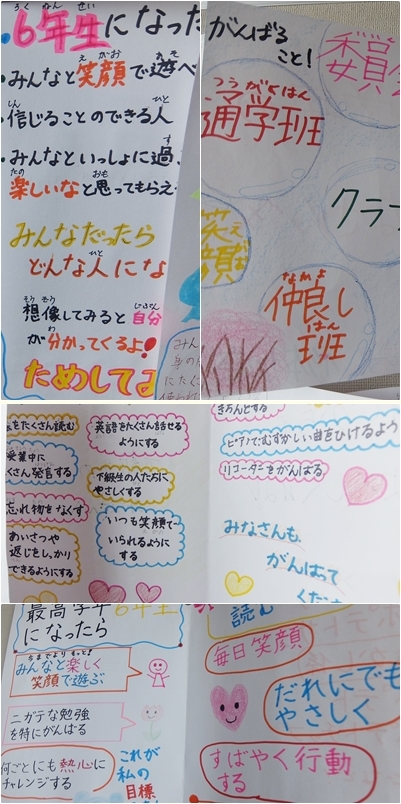 6年生になった
ろく ねん せい
・みんなと笑顔で遊べ
えがお あそ
・信じることのできる人
しん ひと
・みんなといっしょに過
す
楽しいなと思ってもらえ
たの おも
みんなだったら
どんな人にな
ひと
想像してみると自分
そうぞう じぶん
が分かってくるよ!
わ
ためしてみ
がんばる
こと!
委員会
通学班
つうがくはん
クラブ
笑顔
えがお
仲良し
なかよ
班
はん
をたくさん読む
英語をたくさん話せる
ようにする
授業中に
くさん発言する
下級生の人たちに
やさしくする
忘れ物をなくす
いつも笑顔で
いられるように
する
あいさつや
返じをしっかり
できるようにする
きちんとする
ピアノでむずかしい曲をひけるよう
リコーダーをがんばる
みなさんも、
がんばって
くださ
最高学年
6年生
になったら
今までよりもっと
みんなと楽しく
笑顔で遊ぶ
ニガテな勉強
を特にがんばる
何ごとにも熱心に
チャレンジする
これが
私の
目標
読む
毎日笑顔
だれにでも
やさしく
すばやく行動
する